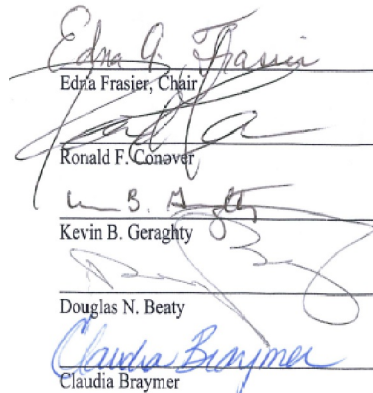 Edna A. Frasier
Edna Frasier, Chair
Ronald F. Conover
Kevin B. Geraghty
Douglas N. Beaty
Claudia Braymer
Claudia Braymer